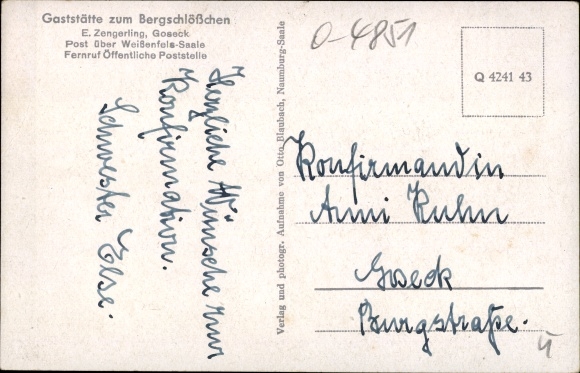 Gaststätte zum Bergschlößchen
E. Zengerling, Goseck
Post über Weißenfels-Saale
Fernruf Öffentliche Poststelle
Herzliche Wünsche zur
Konfirmation.
Schwester Else.
Verlag und photogr. Aufnahme von Otto Blaubach, Naumburg-Saale
O-4851
Q 4241 43
Konfirmandin
Anni Kuhn
Goseck
Burgstraße.